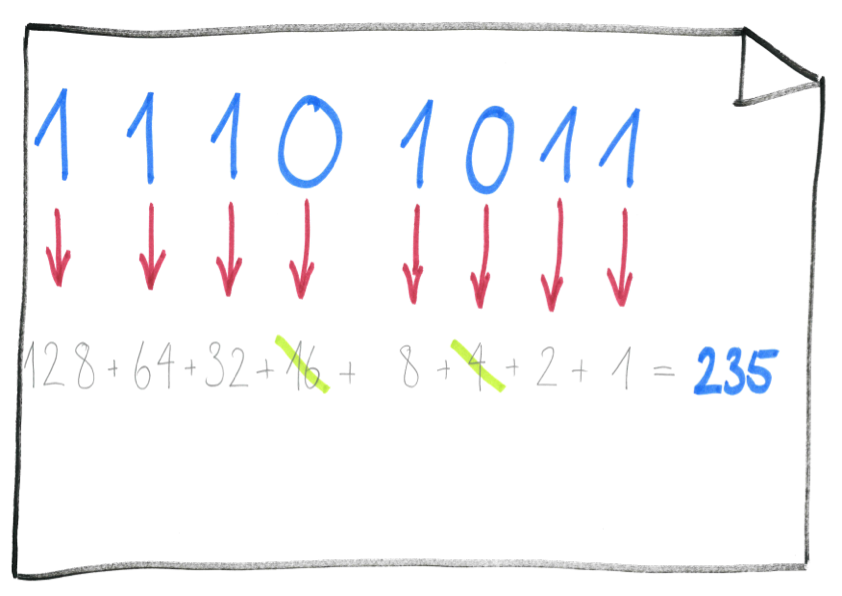 1 1 1 0 1 0 1 1
128+64+32+16+ 8+4+2+1=235